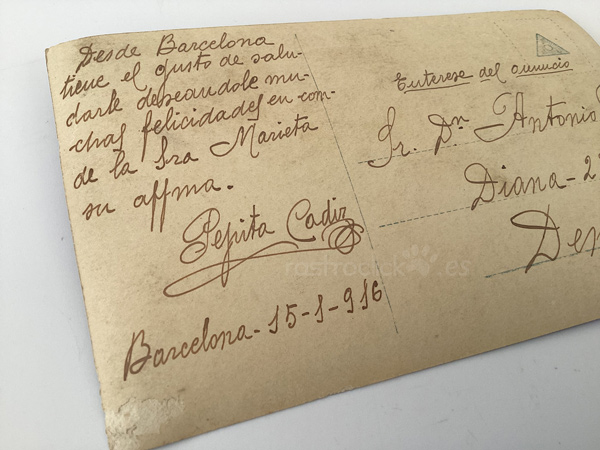 Desde Barcelona
tiene el gusto de salu-
darle deseandole mu-
chas felicidades en com-
de la Sra Marieta
su affma.
Pepita Cadiz
Barcelona-15-1-916
Enterese del anuncio
Sr. Dn. Antonio
Diana-2
Den
rastroclick.es